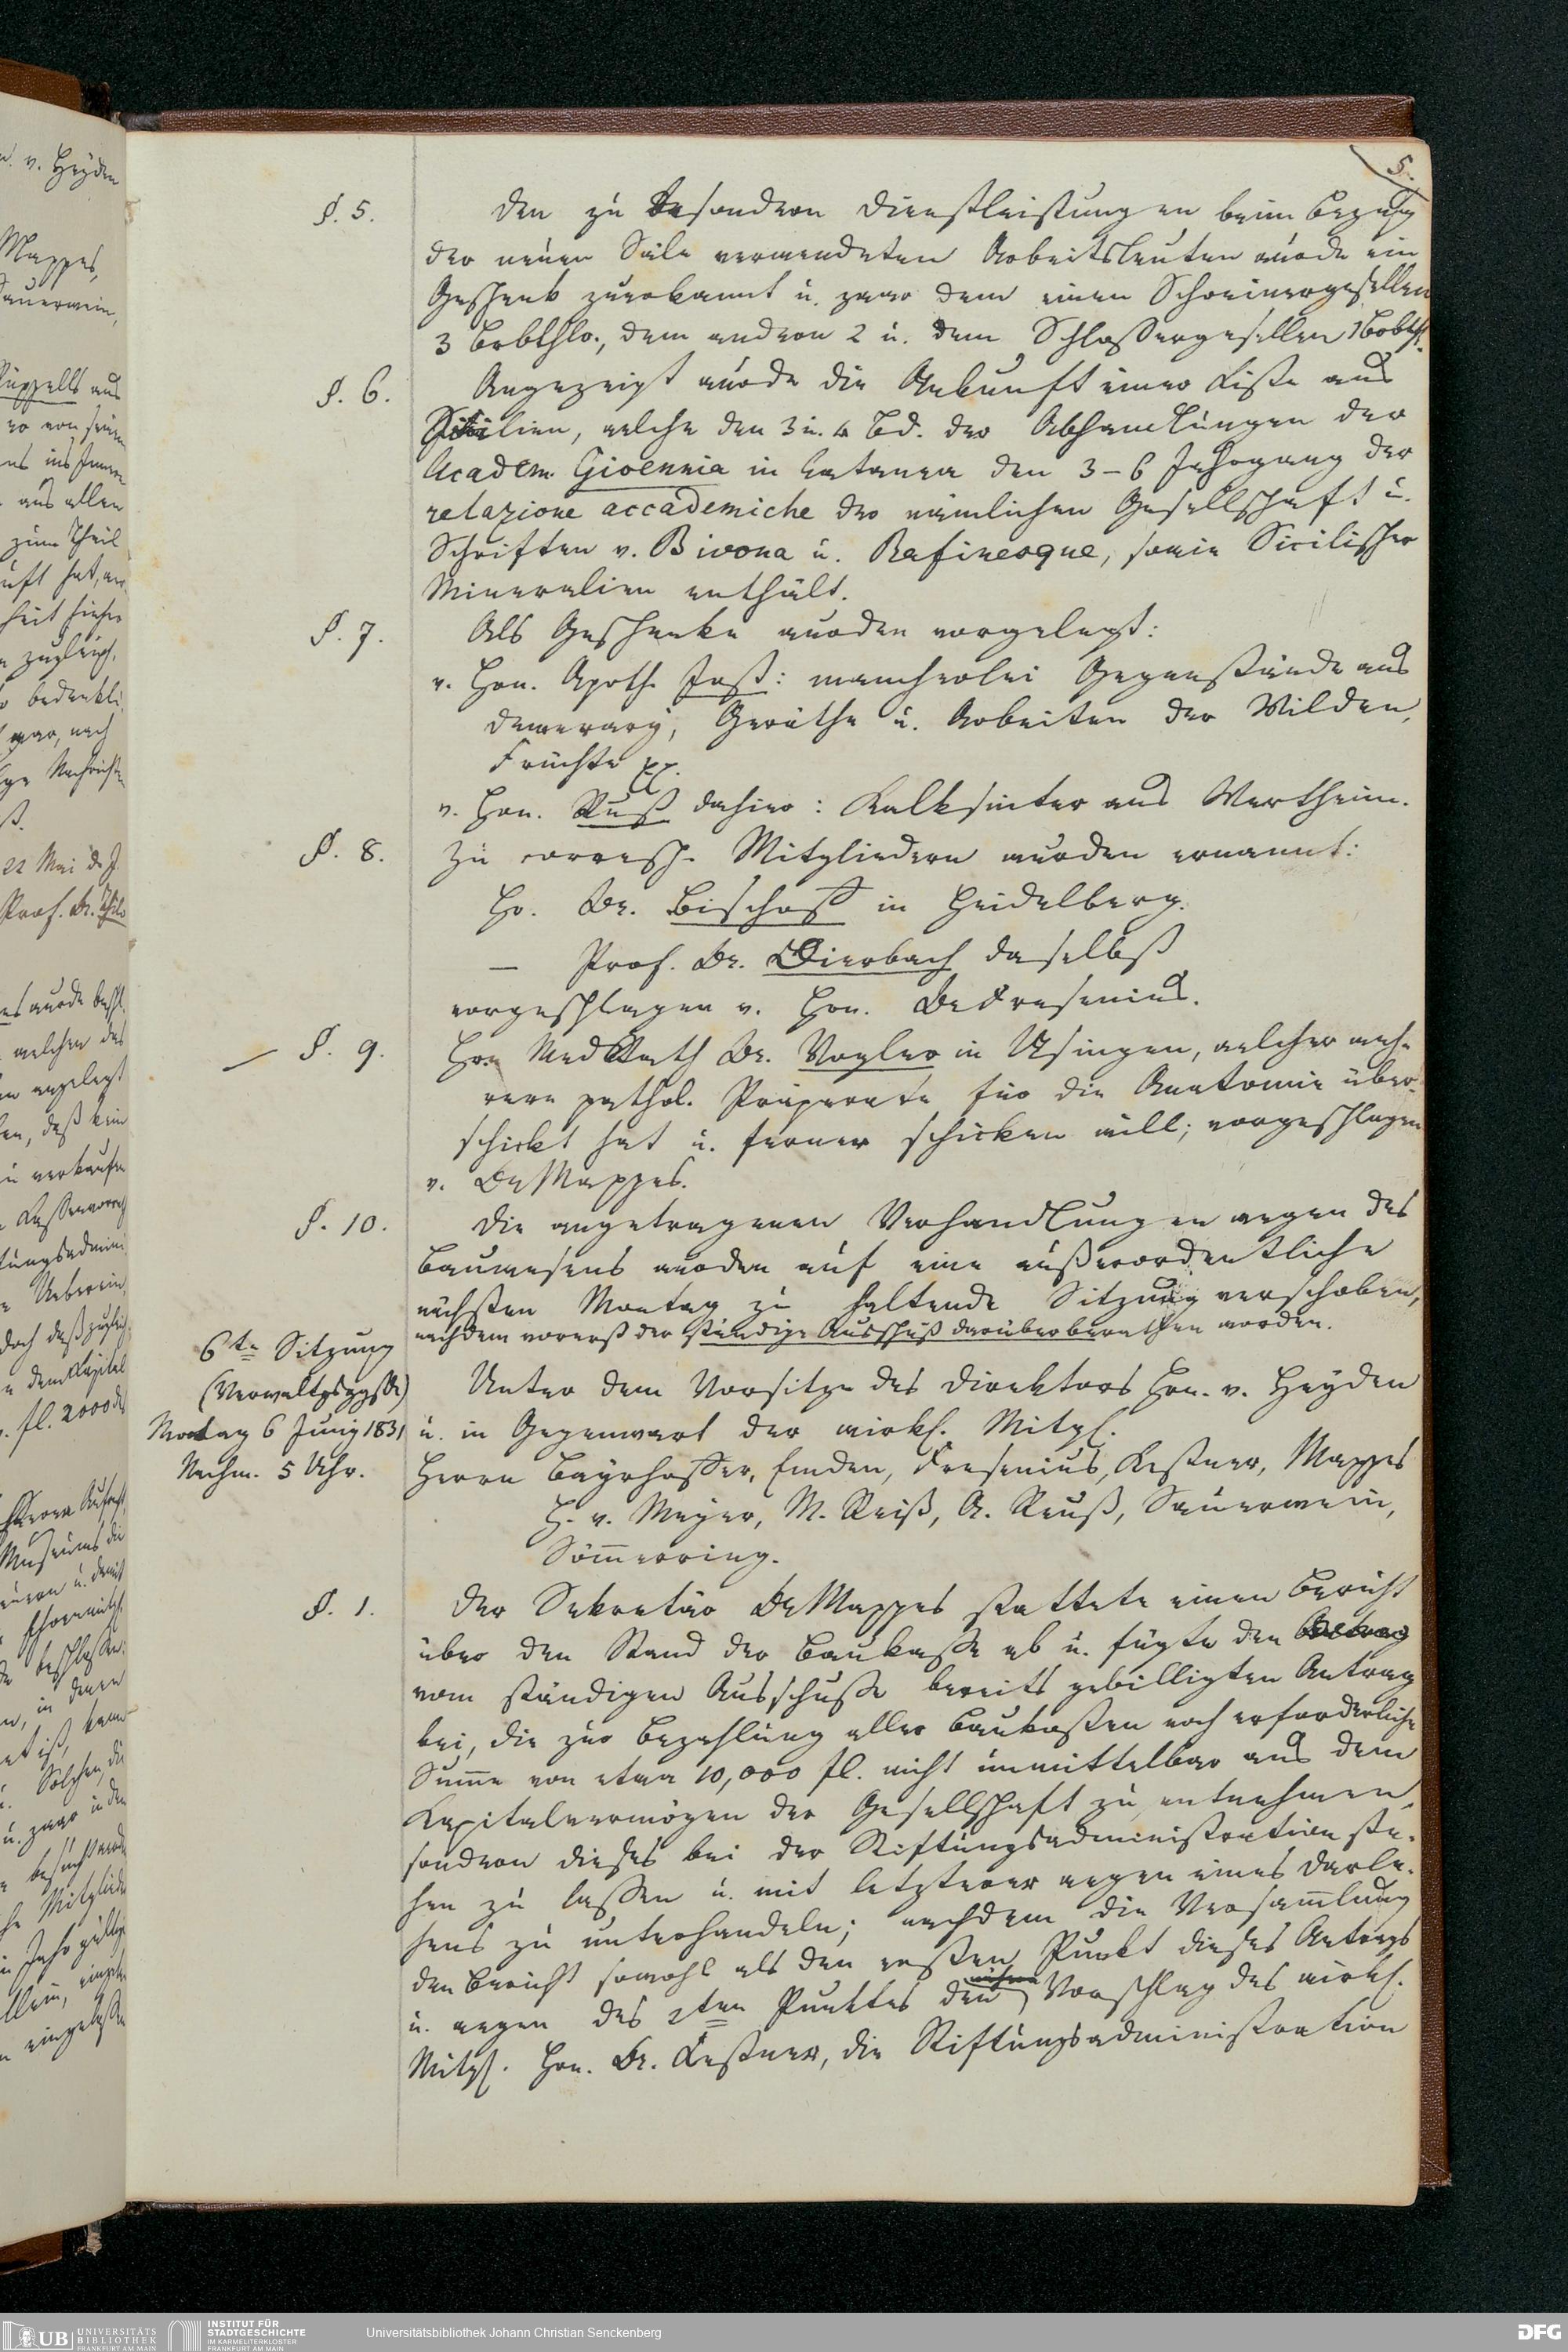 5.
§. 5.
Den zu besondern Dienstleistungen beim Bezug
der neuen Säle verwendeten Arbeitsleuten wurde ein
Geschenk zuerkannt u. zwar dem einen Schreinergesellen
3 Brbthlr., dem andern 2 u. dem Schlossergesellen 1 Brbthl.
§. 6.
Angezeigt wurde die Ankunft einer Kiste aus
Sicilien, welche den 3 u. 4 Bd. der Abhandlungen der
Academ. Gioennia in Catanea den 3–6 Jahrgang der
relazione accademiche der nämlichen Gesellschaft u.
Schriften v. Bivona u. Rafinesque, sowie Sicilischer
Mineralien enthält.
§. 7.
Als Geschenke wurden vorgelegt:
v. Hrn. Apoth. Jost: mancherlei Gegenstände aus
Demerary, Geräthe u. Arbeiten der Wilden,
Früchte
v. Hrn. Ruß dahier: Kalksinter aus Wertheim.
§. 8.
Zu corresp. Mitgliedern wurden ernannt:
Hr. Dr. Bischoff in Heidelberg.
— Prof. Dr. Dierbach daselbst
vorgeschlagen v. Hrn. Dr Fresenius.
§. 9.
Hrn Med Rath Dr. Vogler in Usingen, welcher meh-
rere pathol. Präparate für die Anatomie über-
schickt hat u. ferner schicken will; vorgeschlagen
v. Dr Mappes.
§. 10.
Die angetragenen Verhandlungen wegen des
Bauwesens wurden auf eine außerordentliche
nächsten Montag zu haltende Sitzung verschoben,
nachdem vorerst der ständige Ausschuß darüber berathen worden.
6te Sitzung
(Verwaltgs)
Montag 6 Juny 1831
Nachm. 5 Uhr.
Unter dem Vorsitze des Direktors Hrn. v. Heyden
u. in Gegenwart der wirkl. Mitgl.
Herrn Bayrhoffer, Emden, Fresenius, Kestner, Mappes
H. v. Meyer, M. Reiß, A. Reuß, Sauerwein,
Sömmerring.
§. 1.
Der Sekretär Dr Mappes stattete einen Bericht
über den Stand der Baukasse ab u. fügte den
vom ständigen Ausschusse bereits gebilligten Antrag
bei, die zur Bezahlung aller Baukosten noch erforderliche
Summe von etwa 10,000 fl. nicht unmittelbar aus dem
Kapitalvermögen der Gesellschaft zu entnehmen,
sondern dieses bei der Stiftungsadministration ste-
hen zu lassen u. mit letzterer wegen eines Darle-
hens zu unterhandeln; nachdem die Versammlung
den Bericht sowohl als den ersten Punkt dieses Antrags
u. wegen des 2ten Punktes den Vorschlag des wirkl.
Mitgl. Hrn. Dr. Kestner, die Stiftungsadministration
UB UNIVERSITÄTS
BIBLIOTHEK
FRANKFURT AM MAIN
INSTITUT FÜR
STADTGESCHICHTE
IM KARMELITERKLOSTER
FRANKFURT AM MAIN
Universitätsbibliothek Johann Christian Senckenberg
DFG